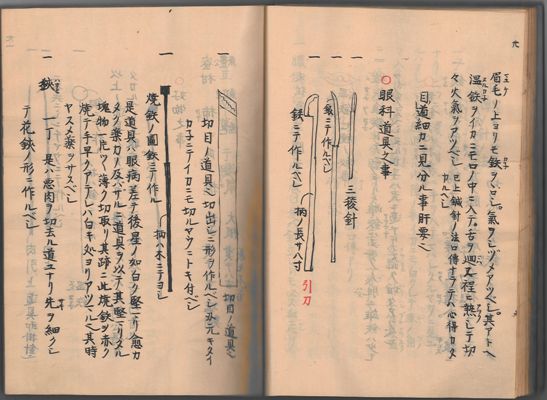 眉毛ノ上ヨリモ鉄ヲロシ氣ヲシヅメアツベシ其アトヘ
温鉄ヲイカニモロノ中ニ入テ舌ヲ廻ス程ニ熱シテ切
々火氣ヲアツベシ 已上鍼針ノ法口傳ナラデハ心得カタ
カルベシ
目道細カニ見分ル事肝要ヘ
○眼科道具之事
一
三稜針
一
銕ニテ作ルベシ
一
銕ニテ作ルベシ
柄ノ長サ八寸
引刀
一
切目ノ道具ヘ
切目ノ道具ヘ切出シニ形ヲ作ルベシ刄元キタイ
カチニテイカニモ切ルマウニトキ付ベシ
一
柄ハ木ニテヨシ
焼鉄ノ圖鉄ニテ作ル
是道具ハ眼病差テ後星ノ如白ク堅マリ愈カ
タク薬力ノ及バザルニ道具ヲ以テ其堅マリタル
塊物一皮ヅヽ薄ク切取リ其跡ニ此焼鉄ヲ赤ク
焼テ手早クアテレバ白キ処ヨリアツマル其時
ヤスメ薬ヲサスベシ
一 鋏 一丁 是ハ悪肉ヲ切去ル道具ユヘリ先ヲ細クシ
テ花鋏ノ形ニ作ルベシ